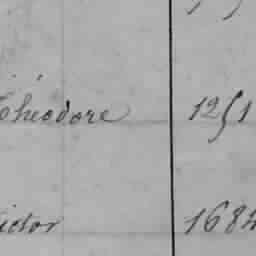 Théodore 1251
ictor 1684